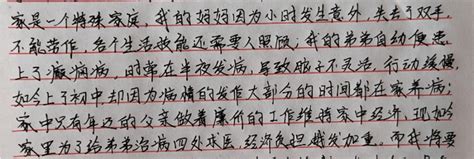 家是一个特殊家庭，我的妈妈因为小时发生意外，失去了双手，
不能劳作，各个生活技能还需要人照顾；我的弟弟自幼便患
上了癫痫病，时常在半夜发病，导致脑子不灵活，行动缓慢，
如今上了初中，却因为病情的发作大部分的时间都在家养病；
家中只有年迈的父亲做着廉价的工作维持家中经济，现如今
家里为了给弟弟治病四外求医，经济负担越发加重。而我将要